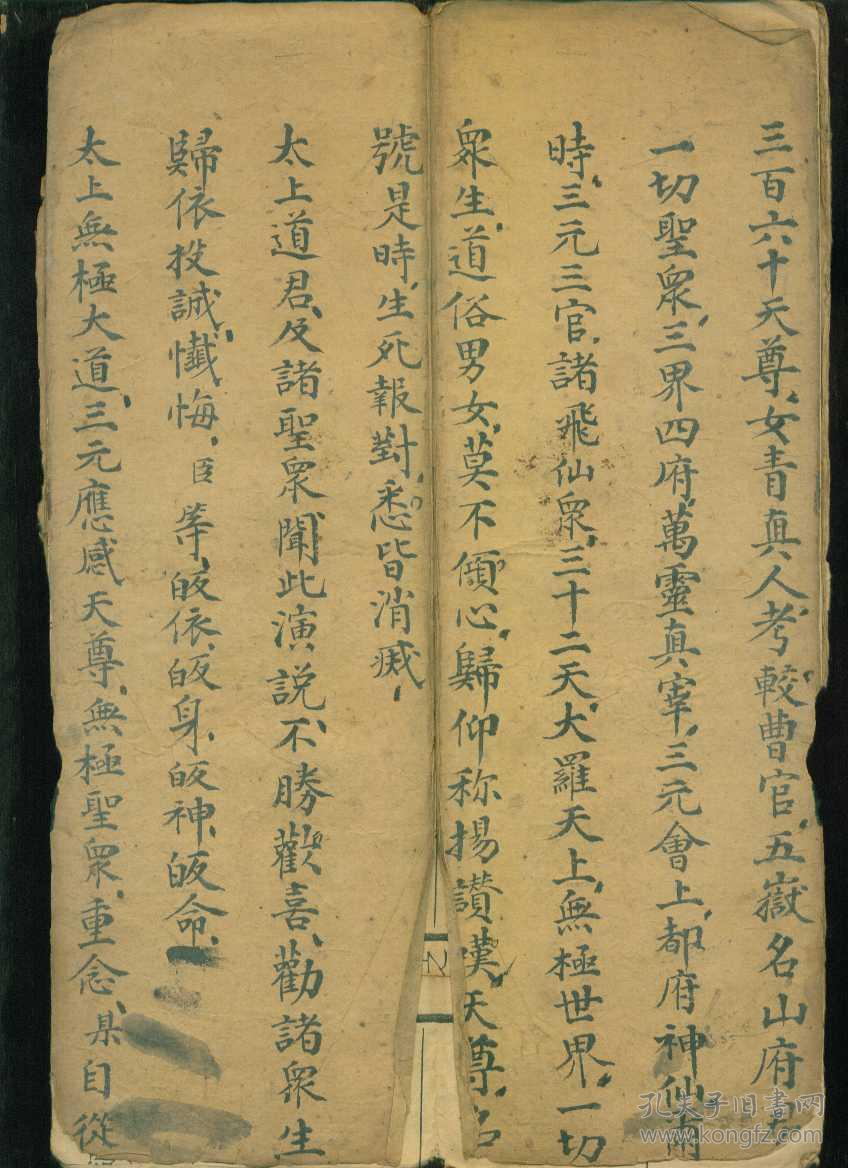 三百六十天尊、女青真人、考較曹官、五嶽名山府
一切聖衆、三界四府、萬靈真宰、三元會上、都府神仙、爾
時、三元三官、諸飛仙衆、三十二天、大羅天上、無極世界、一切
衆生、道俗男女、莫不傾心、歸仰称揚讃嘆、天尊、名
號是時、生死報對、悉皆消滅、
太上道君、及諸聖衆、聞此演説、不勝歡喜、勸諸衆生
歸依投誠、懺悔、臣等、皈依、皈身、皈神、皈命、
太上無極大道、三元應感天尊、無極聖衆、重念、某自從
孔夫子旧书网
www.kongfz.com